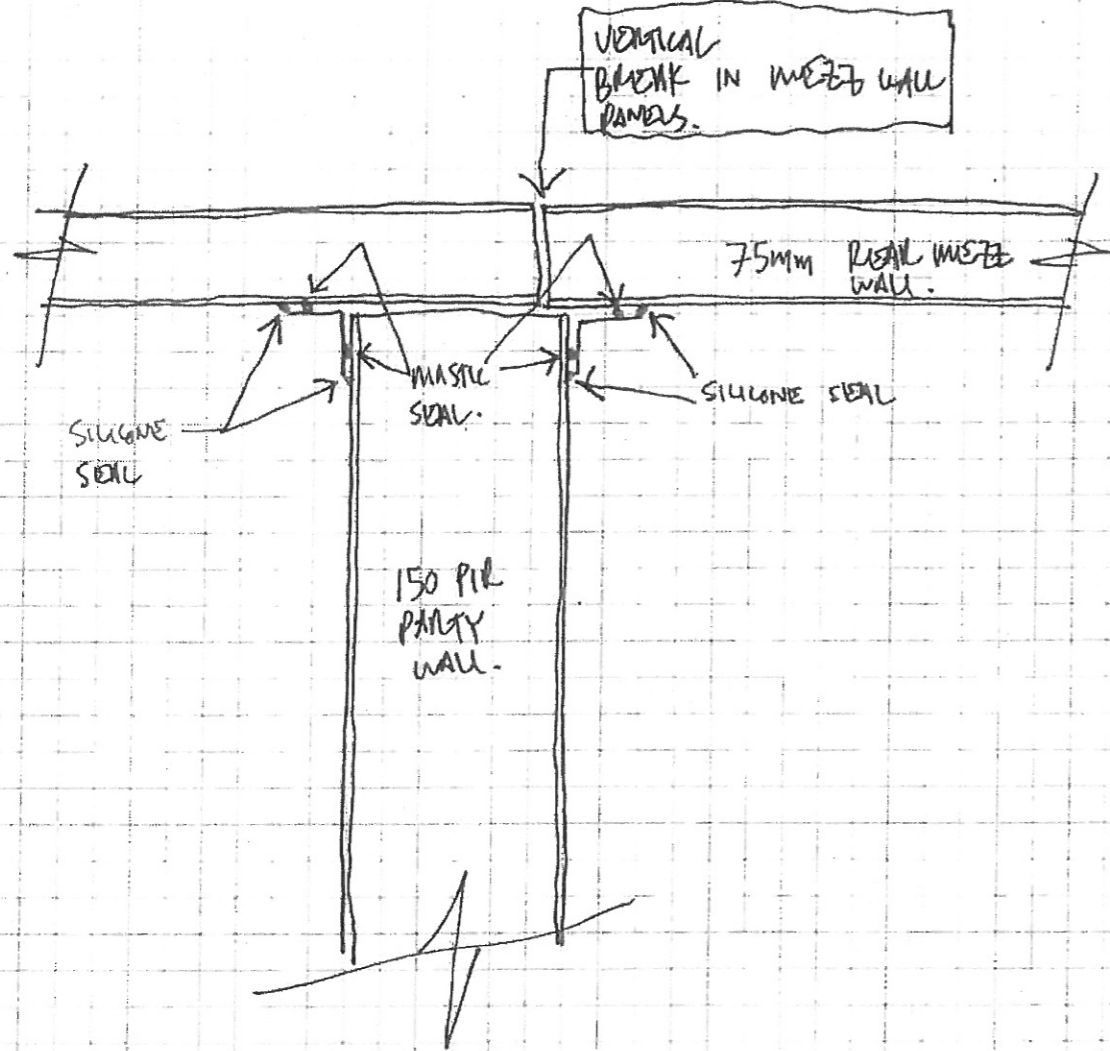 VERTICAL
BREAK IN MEZZ WALL
PANELS.
75mm REAR MEZZ
WALL.
MASTIC
SEAL.
SILICONE SEAL
SILICONE
SEAL
150 PIR
PARTY
WALL.